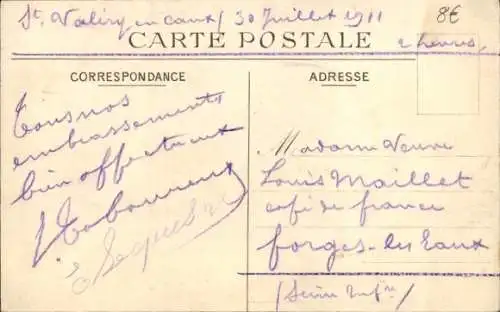 St Valéry en Caux / 30 Juillet 1911
8€
CARTE POSTALE
2 heures,
CORRESPONDANCE
ADRESSE
Tous nos
embrassements
bien affectueux
Madame Veuve
Louis Maillet
café de france
forges-les Eaux
(Seine Infre)